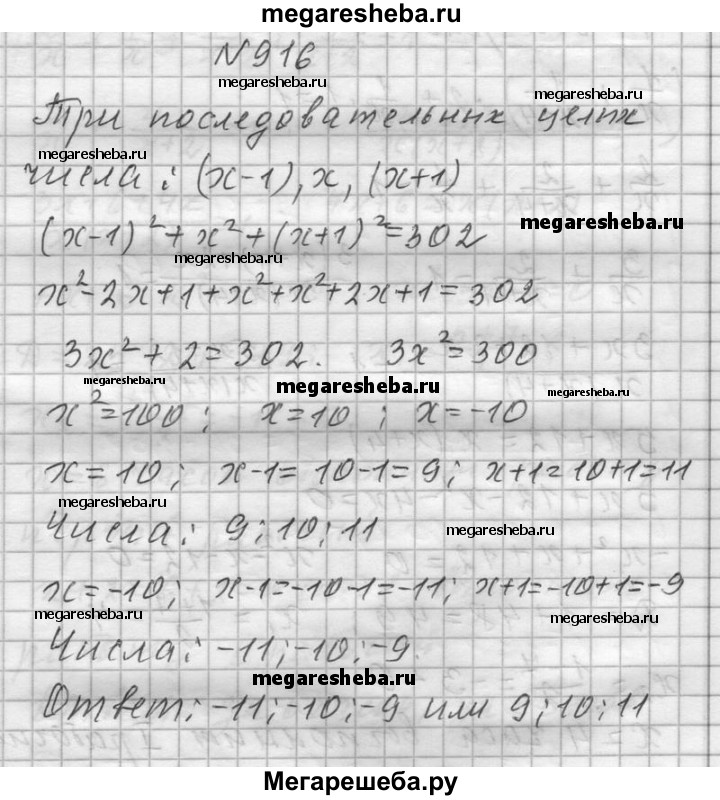 megaresheba.ru
№916
megaresheba.ru
megaresheba.ru
Три последовательных целых
megaresheba.ru
числа: (x-1), x, (x+1)
megaresheba.ru
(x-1)²+x²+(x+1)²=302
megaresheba.ru
x²-2x+1+x²+x²+2x+1=302
3x²+2=302. 3x²=300
megaresheba.ru
megaresheba.ru
megaresheba.ru
x²=100; x=10; x=-10
x=10; x-1=10-1=9; x+1=10+1=11
megaresheba.ru
Числа: 9; 10; 11
megaresheba.ru
x=-10; x-1=-10-1=-11; x+1=-10+1=-9
megaresheba.ru
megaresheba.ru
Числа: -11; -10; -9.
megaresheba.ru
Ответ: -11; -10; -9 или 9; 10; 11
Мегарешеба.ру